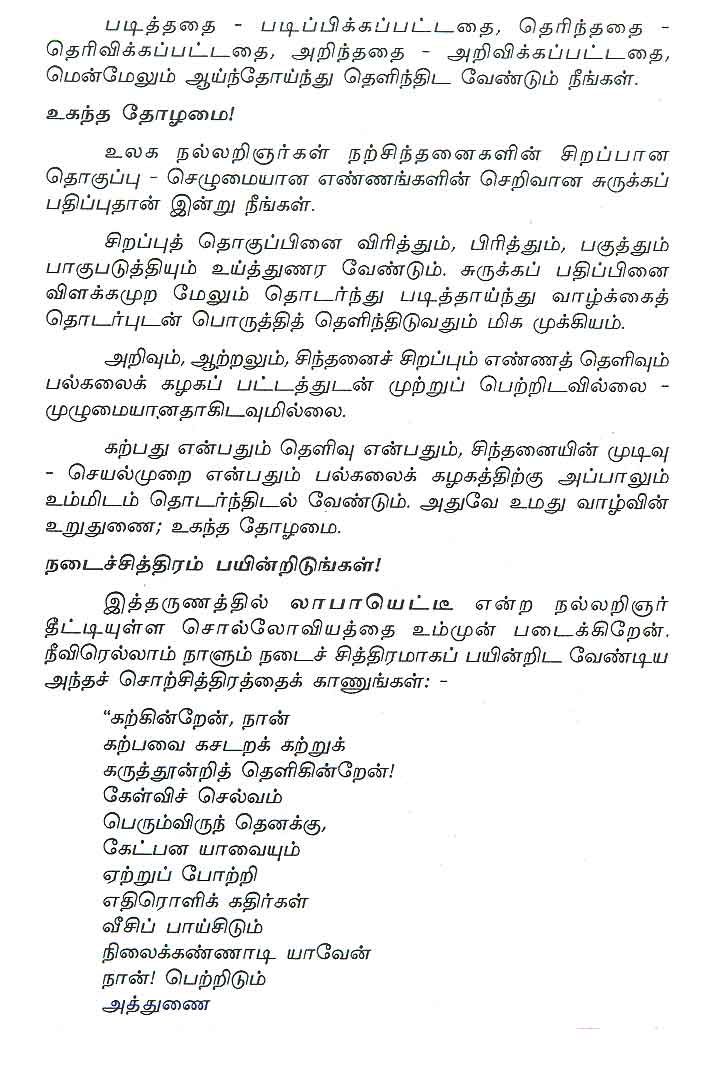 படித்ததை – படிப்பிக்கப்பட்டதை, தெரிந்ததை –
தெரிவிக்கப்பட்டதை, அறிந்ததை – அறிவிக்கப்பட்டதை,
மென்மேலும் ஆய்ந்தோய்ந்து தெளிந்திட வேண்டும் நீங்கள்.
உகந்த தோழமை!
உலக நல்லறிஞர்கள் நற்சிந்தனைகளின் சிறப்பான
தொகுப்பு – செழுமையான எண்ணங்களின் செறிவான சுருக்கப்
பதிப்புதான் இன்று நீங்கள்.
சிறப்புத் தொகுப்பினை விரித்தும், பிரித்தும், பகுத்தும்
பாகுபடுத்தியும் உய்த்துணர வேண்டும். சுருக்கப் பதிப்பினை
விளக்கமுற மேலும் தொடர்ந்து படித்தாய்ந்து வாழ்க்கைத்
தொடர்புடன் பொருத்தித் தெளிந்திடுவதும் மிக முக்கியம்.
அறிவும், ஆற்றலும், சிந்தனைச் சிறப்பும் எண்ணத் தெளிவும்
பல்கலைக் கழகப் பட்டத்துடன் முற்றுப் பெற்றிடவில்லை –
முழுமையானதாகிடவுமில்லை.
கற்பது என்பதும் தெளிவு என்பதும், சிந்தனையின் முடிவு
– செயல்முறை என்பதும் பல்கலைக் கழகத்திற்கு அப்பாலும்
உம்மிடம் தொடர்ந்திடல் வேண்டும். அதுவே உமது வாழ்வின்
உறுதுணை; உகந்த தோழமை.
நடைச்சித்திரம் பயின்றிடுங்கள்!
இத்தருணத்தில் லாபாயெட்டீ என்ற நல்லறிஞர்
தீட்டியுள்ள சொல்லோவியத்தை உம்முன் படைக்கிறேன்.
நீவிரெல்லாம் நாளும் நடைச் சித்திரமாகப் பயின்றிட வேண்டிய
அந்தச் சொற்சித்திரத்தைக் காணுங்கள்: –
“கற்கின்றேன், நான்
கற்பவை கசடறக் கற்றுக்
கருத்தூன்றித் தெளிகின்றேன்!
கேள்விச் செல்வம்
பெரும்விருந் தெனக்கு,
கேட்பன யாவையும்
ஏற்றுப் போற்றி
எதிரொளிக் கதிர்கள்
வீசிப் பாய்சிடும்
நிலைக்கண்ணாடி யாவேன்
நான்! பெற்றிடும்
அத்துணை